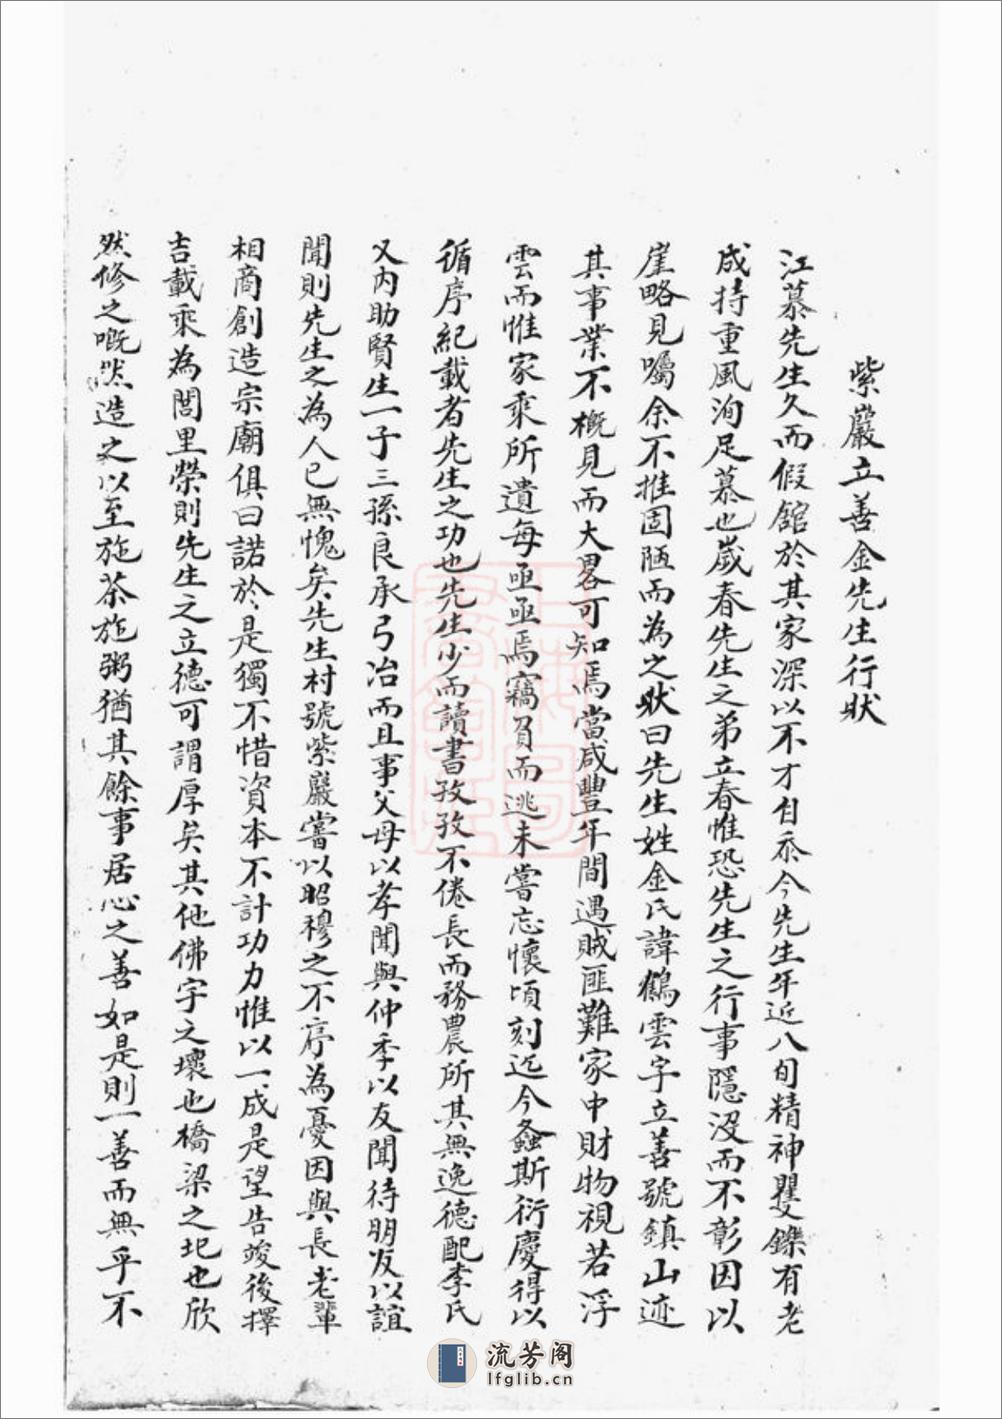 紫巖立善金先生行狀
江慕先生久而假館於其家深以不才自忝今先生年近八旬精神矍鑠有老
成持重風洵足慕也歲春先生之弟立春惟恐先生之行事隱沒而不彰因以
崖略見囑余不推固陋而為之狀曰先生姓金氏諱鶴雲字立善號鎮山迹
其事業不概見而大畧可知焉當咸豐年間遇賊匪難家中財物視若浮
雲而惟家乘所遺每亟亟焉竊負而逃未嘗忘懷頃刻迄今螽斯衍慶得以
循序紀載者先生之功也先生少而讀書孜孜不倦長而務農所其無逸德配李氏
又內助賢生一子三孫良承弓冶而且事父母以孝聞與仲季以友聞待朋友以誼
聞則先生之為人已無愧矣先生村號紫巖嘗以昭穆之不序為憂因與長老輩
相商創造宗廟俱曰諾於是獨不惜資本不計功力惟以一成是望告竣後擇
吉載乘為閭里榮則先生之立德可謂厚矣其他佛宇之壞也橋梁之圮也欣
然修之嘅然造之以至施茶施粥猶其餘事居心之善如是則一善而無乎不
流芳阁
lfglib.cn